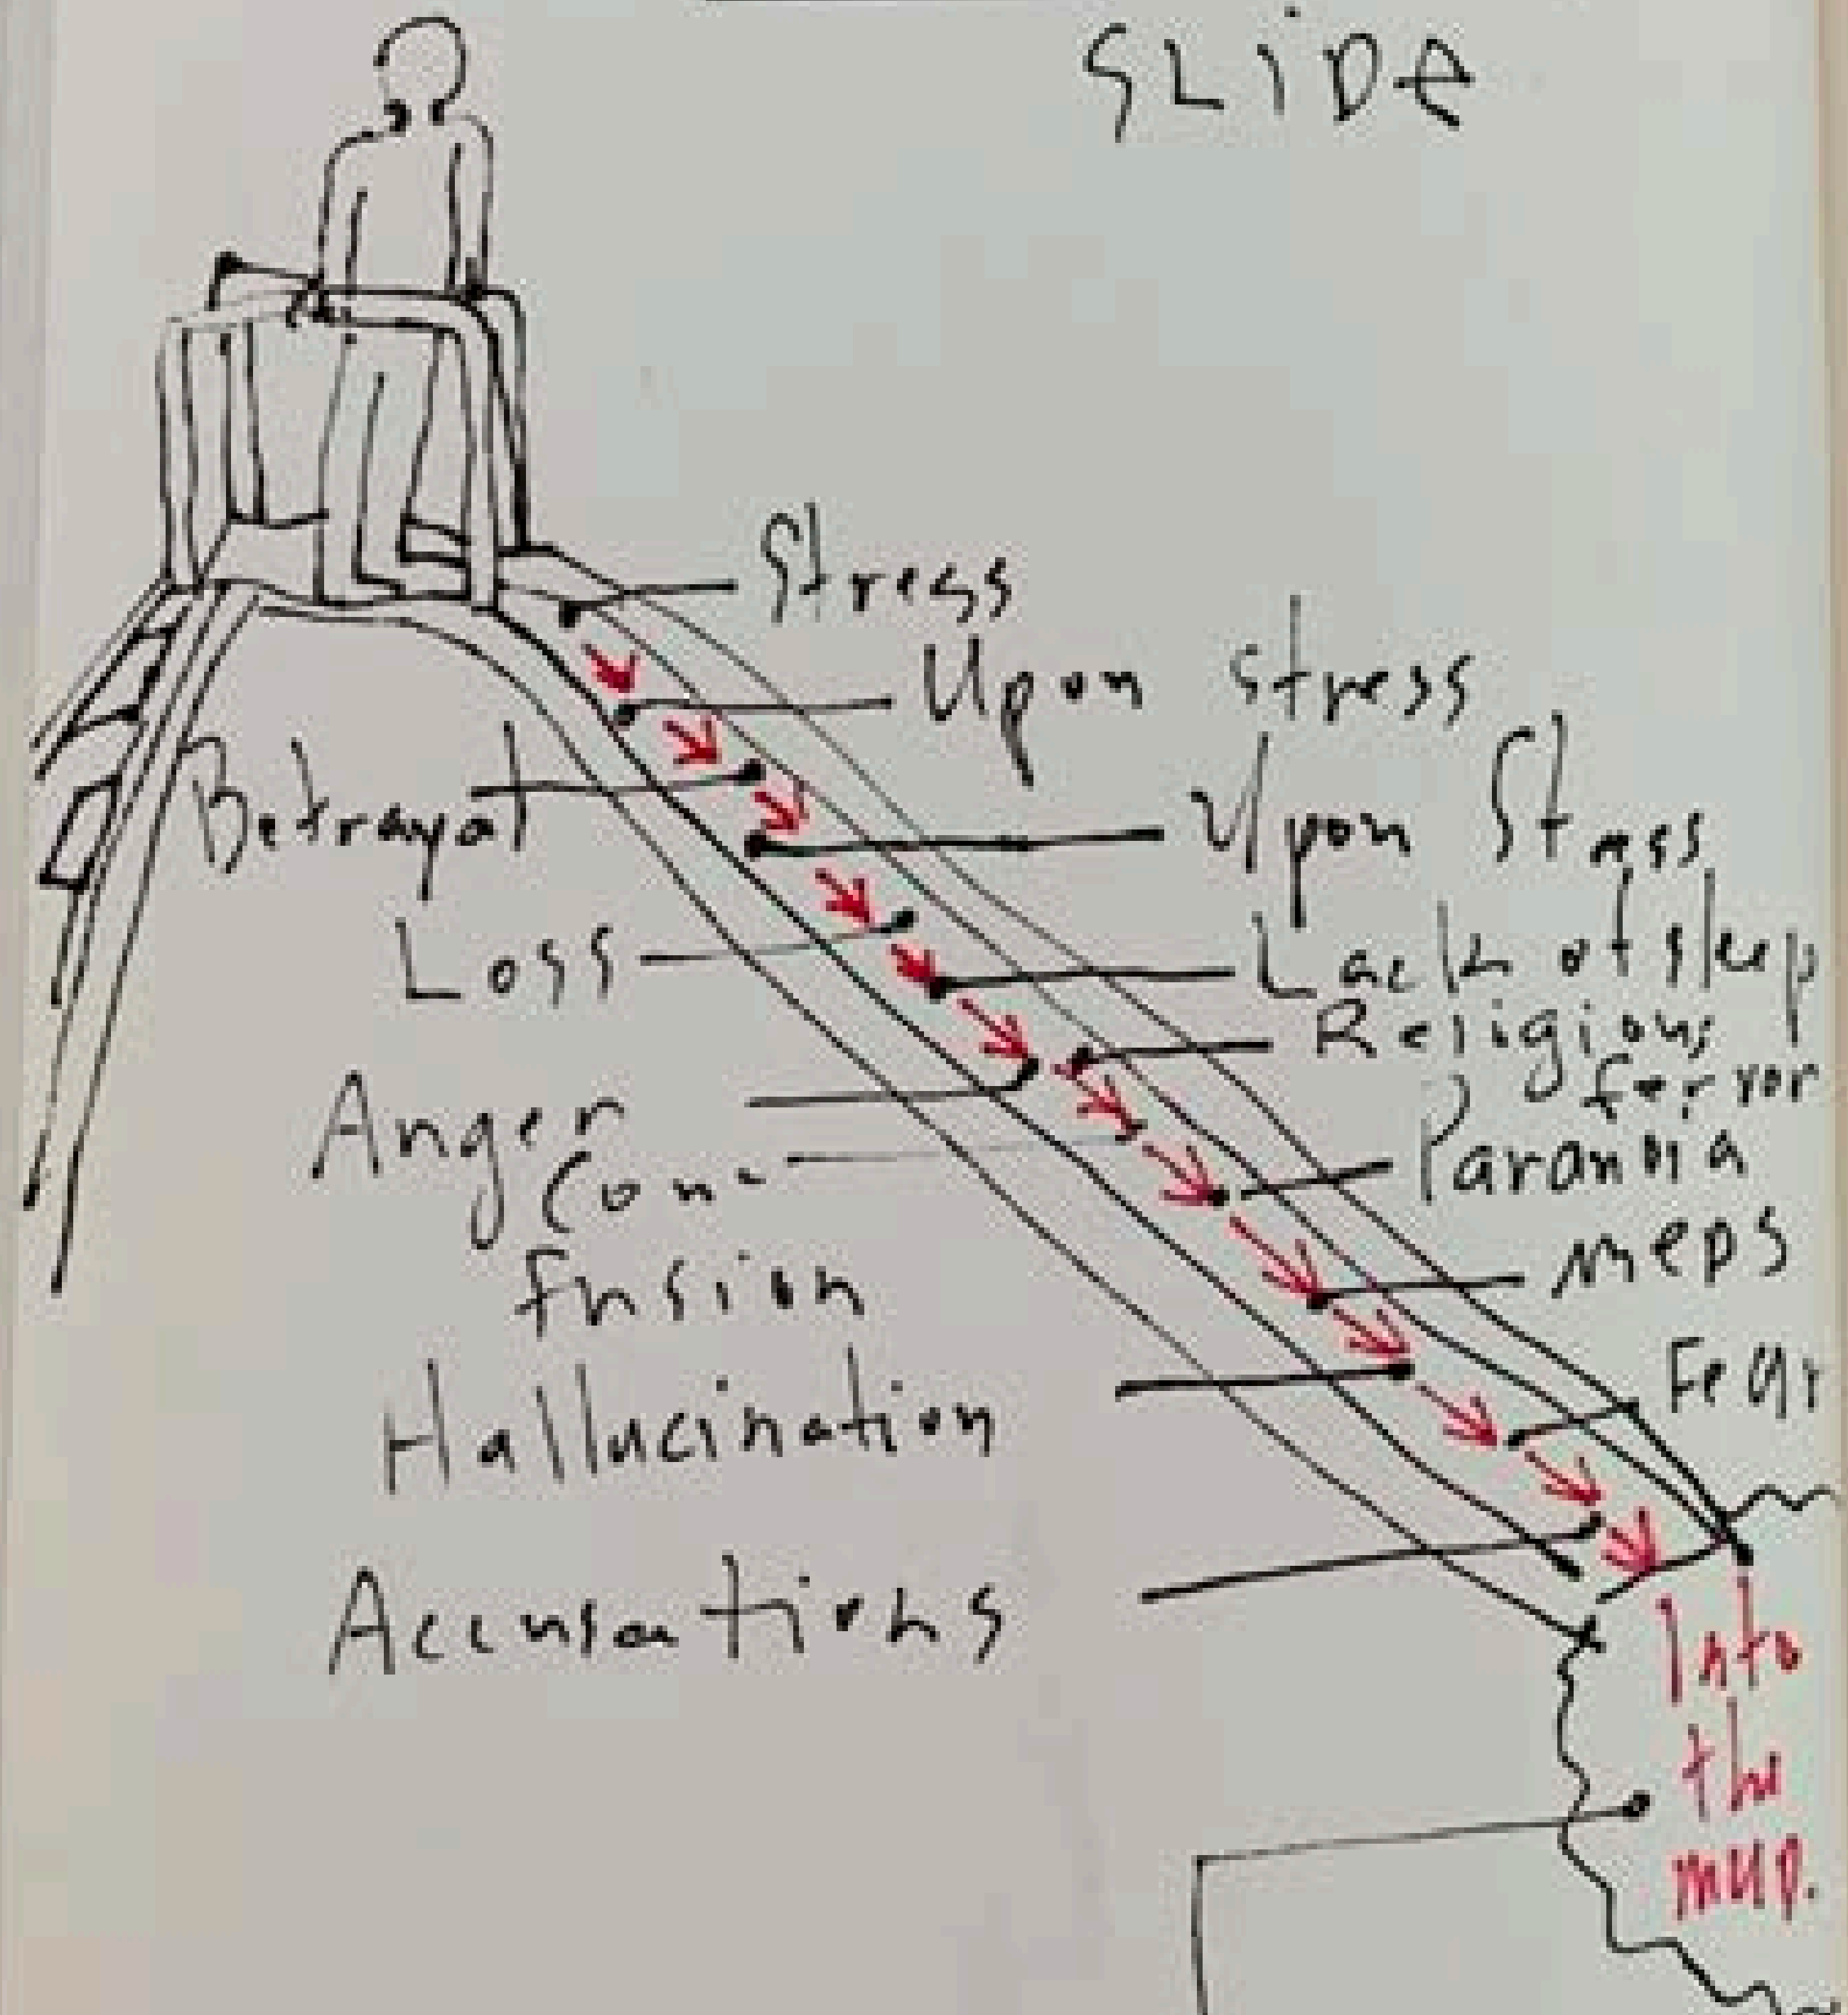 SLiDe
Stress
Upon stress
Betrayal
Upon Stress
Loss
Lack of sleep
Religious
fervor
Anger
Paranoia
Con-
fusion
meds
Hallucination
Fear
Accusations
Into
the
mud.